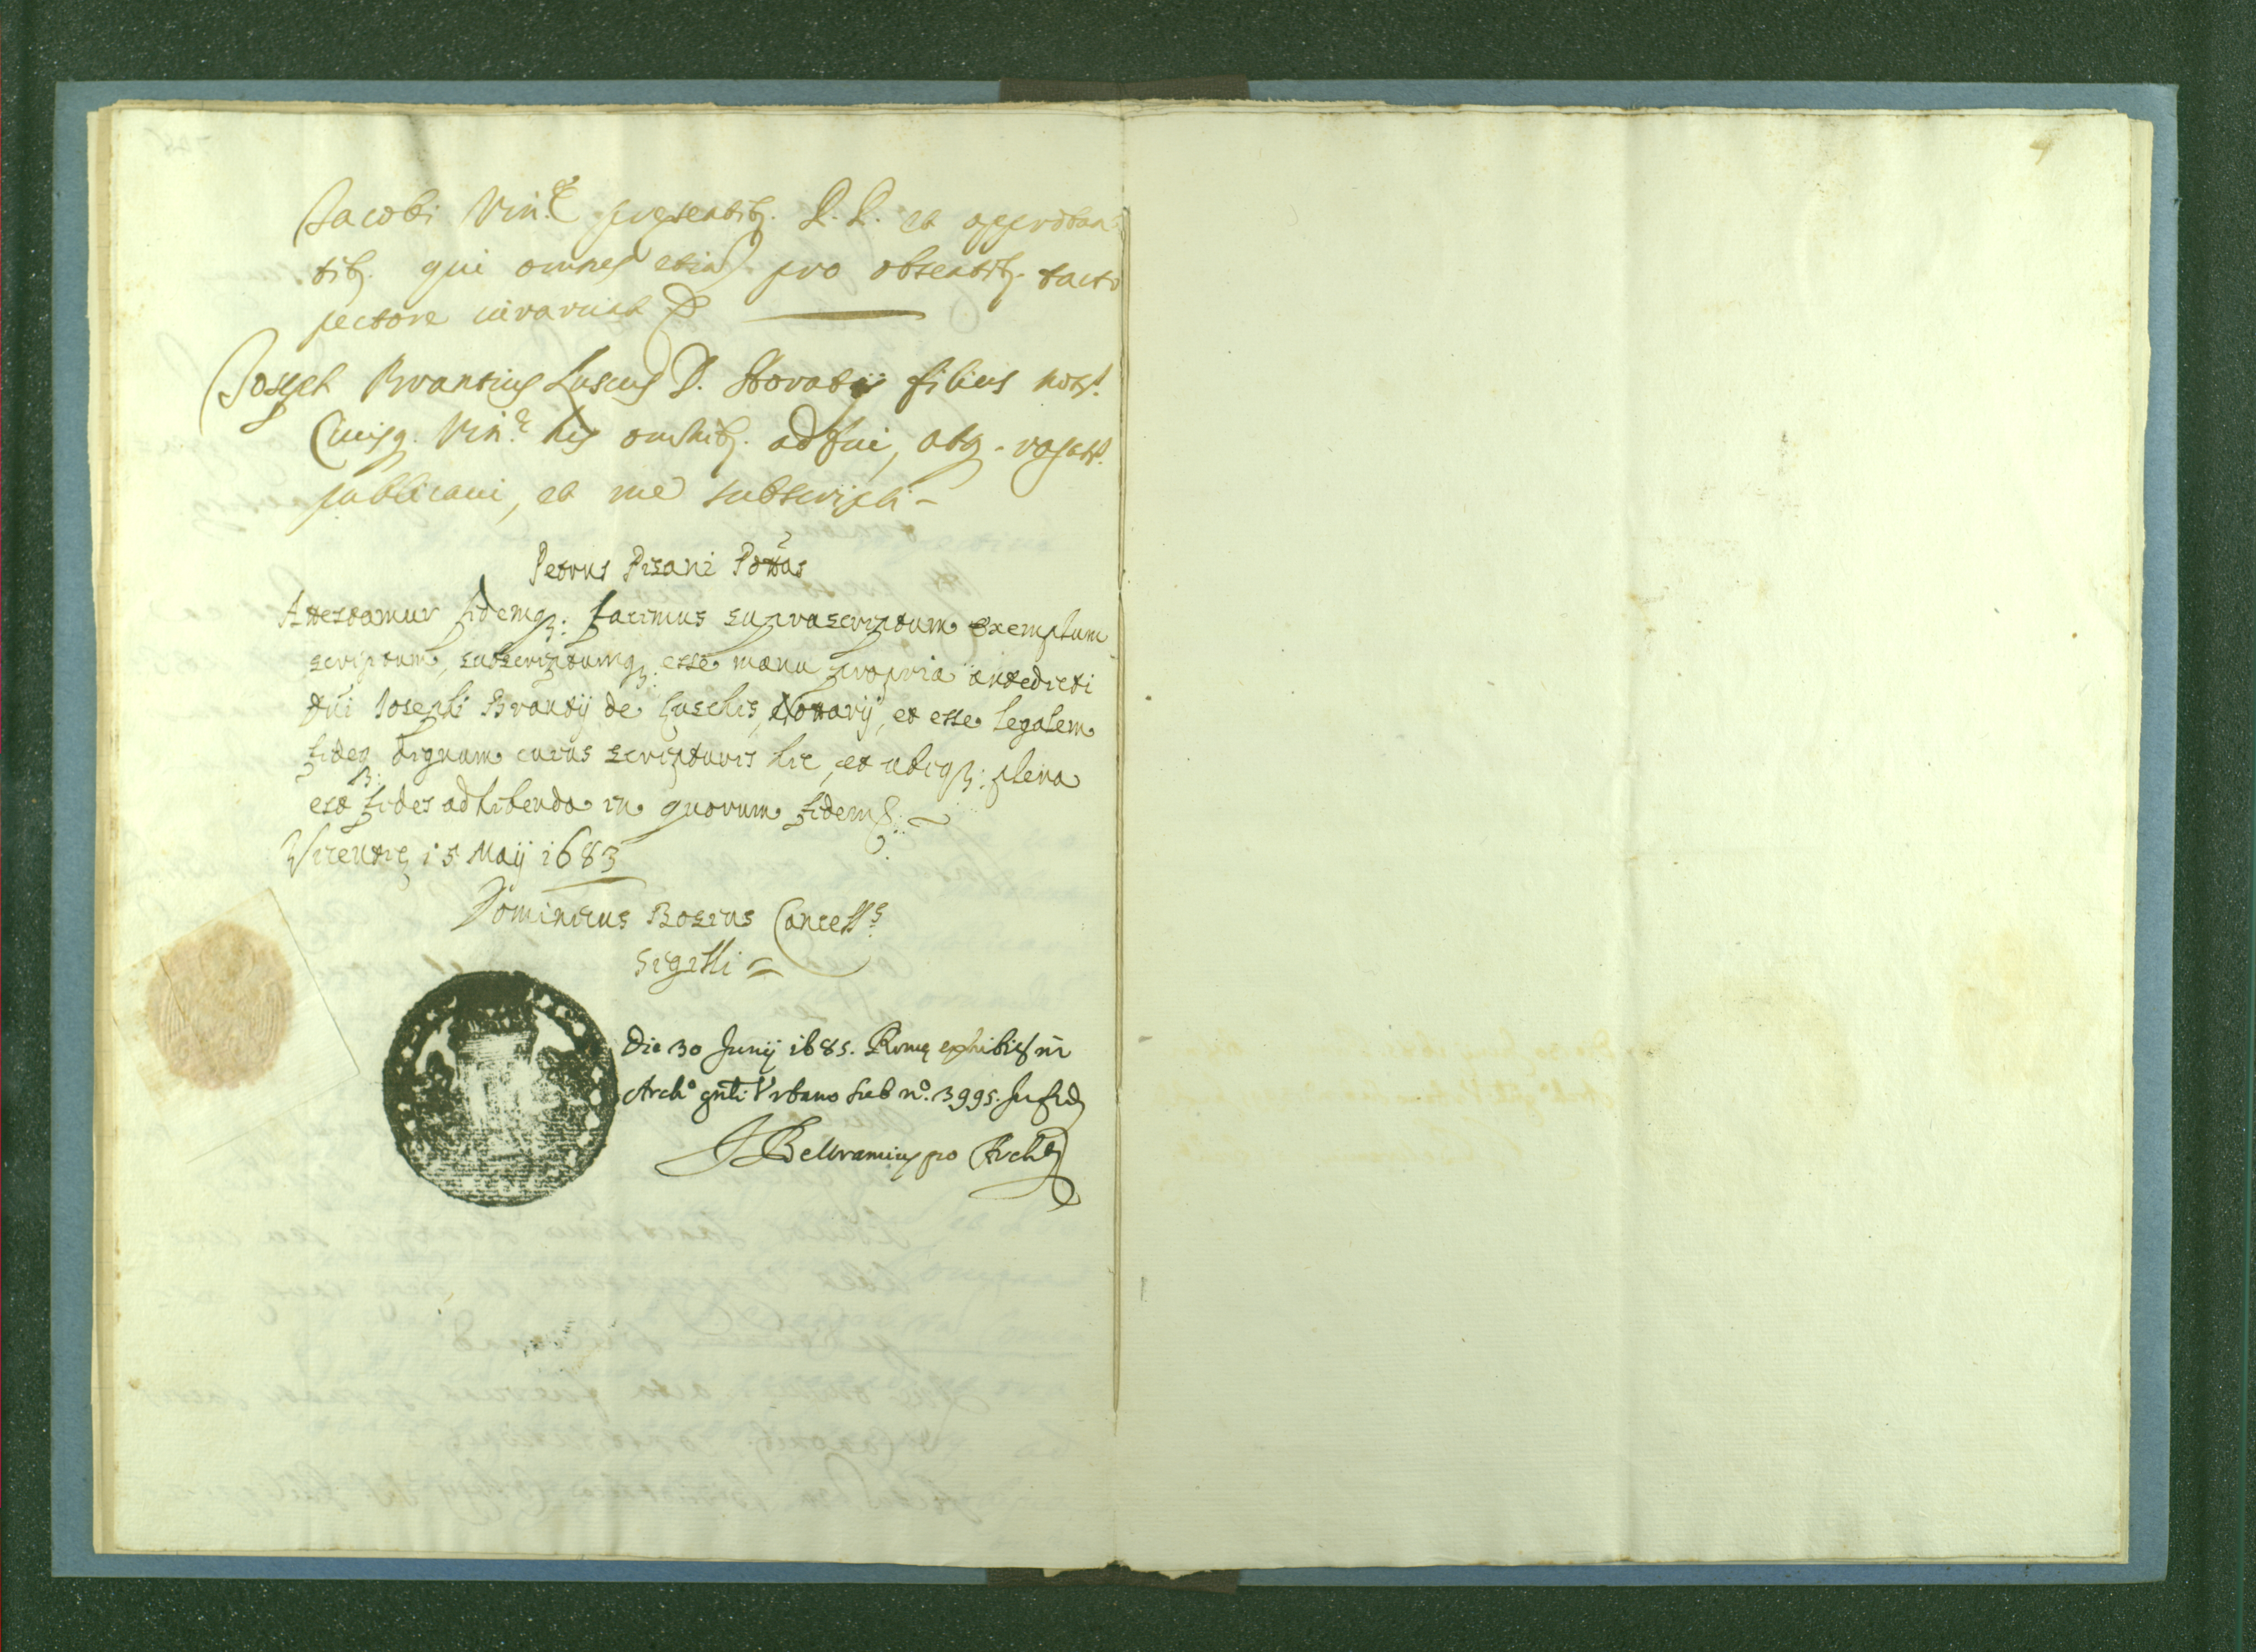 Jacobi Vin.ᵉ presentib. D. D. et approban-
tib. qui omnes etiã pro absentib. tacto
pectore iurarunt &
Joseph Brantius Luscus D. Horatij filius notˢ.
Ciuisq. Vin.ᵉ his omnib. adfui, atq. rogatˢ.
publicaui, et me subscripsi -
Petrus Pisani Põttas
Attestamur fidemq₃: facimus suprascriptum exemplum
scriptum, subscriptumq₃: esse manu propria antedicti
dñi Josephi Brantij de Luschis, Nottarij, et esse legalem
fideq₃: dignum cuius scripturis hic, et ubiq₃: plena
est fides adhibenda in quorum fidem &:
Vicentię 15 Maij 1683
Dominicus Bosius Cancellˢ
Sigilli =
Die 30 Junij 1685. Romę exhibit in
Archº gñli Vrbano sub nº. 3995. In fid
Beltramius pro Arch
4